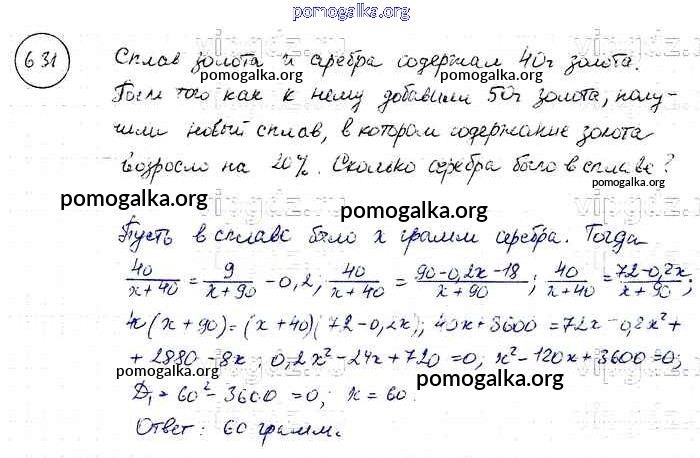 pomogalka.org
631
Сплав золота и серебра содержал 40г золота.
pomogalka.org pomogalka.org
После того как к нему добавили 50г золота, полу-
чили новый сплав, в котором содержание золота
возросло на 20%. Сколько серебра было в сплаве?
pomogalka.org
pomogalka.org pomogalka.org
Пусть в сплаве было x грамм серебра. Тогда
40/(x+40) = 9/(x+90) - 0,2; 40/(x+40) = (90-0,2x-18)/(x+90); 40/(x+40) = (72-0,2x)/(x+90);
4x(x+90)=(x+40)(72-0,2x); 40x+3600=72x-0,2x²+
+2880-8x; 0,2x²-24x+720=0; x²-120x+3600=0;
pomogalka.org pomogalka.org
D₁=60²-3600=0; x=60.
Ответ: 60 грамм.